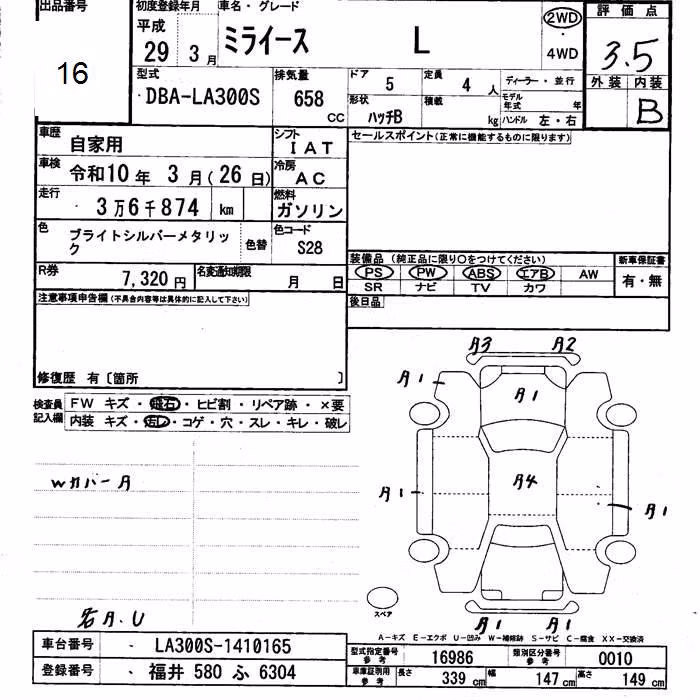 出品番号
16
初度登録年月
平成
29 3 月
車名・グレード
ミライース L
2WD
・
4WD
評価点
3.5
外装 内装
B
型式
DBA-LA300S
排気量
658
CC
ドア
5
定員
4
人
ディーラー・並行
モデル
年式 年
形状
ハッチB
積載
kg
ハンドル 左・右
車歴
自家用
シフト
IAT
セールスポイント(正常に機能するものに限ります)
車検
令和10 年 3 月( 26 日)
冷房
AC
走行
3 万 6 千 874 km
燃料
ガソリン
色
ブライトシルバーメタリッ
ク
色替
色コード
S28
装備品 (純正品に限り〇をつけてください)
PS PW ABS エアB AW
SR ナビ TV カワ
新車保証書
有・無
R券
7,320 円
名変通知期限
月 日
後日品
注意事項申告欄(不具合内容等は具体的に記入して下さい)
修復歴 有〔箇所 〕
検査員
記入欄
FW キズ・飛石・ヒビ割・リペア跡・×要
内装 キズ・汚レ・コゲ・穴・スレ・キレ・破レ
A3 A2
A1
A1
A1
A4
A1
A1 A1
Wカバー A
右A.U
スペア
A-キズ E-エクボ U-凹み W-補修跡 S-サビ C-腐食 XX-交換済
車台番号
LA300S-1410165
登録番号
福井 580 ふ 6304
型式指定番号
参考
16986
類別区分番号
参考
0010
車庫証明用
参考
長さ
339 cm
幅
147 cm
高さ
149 cm